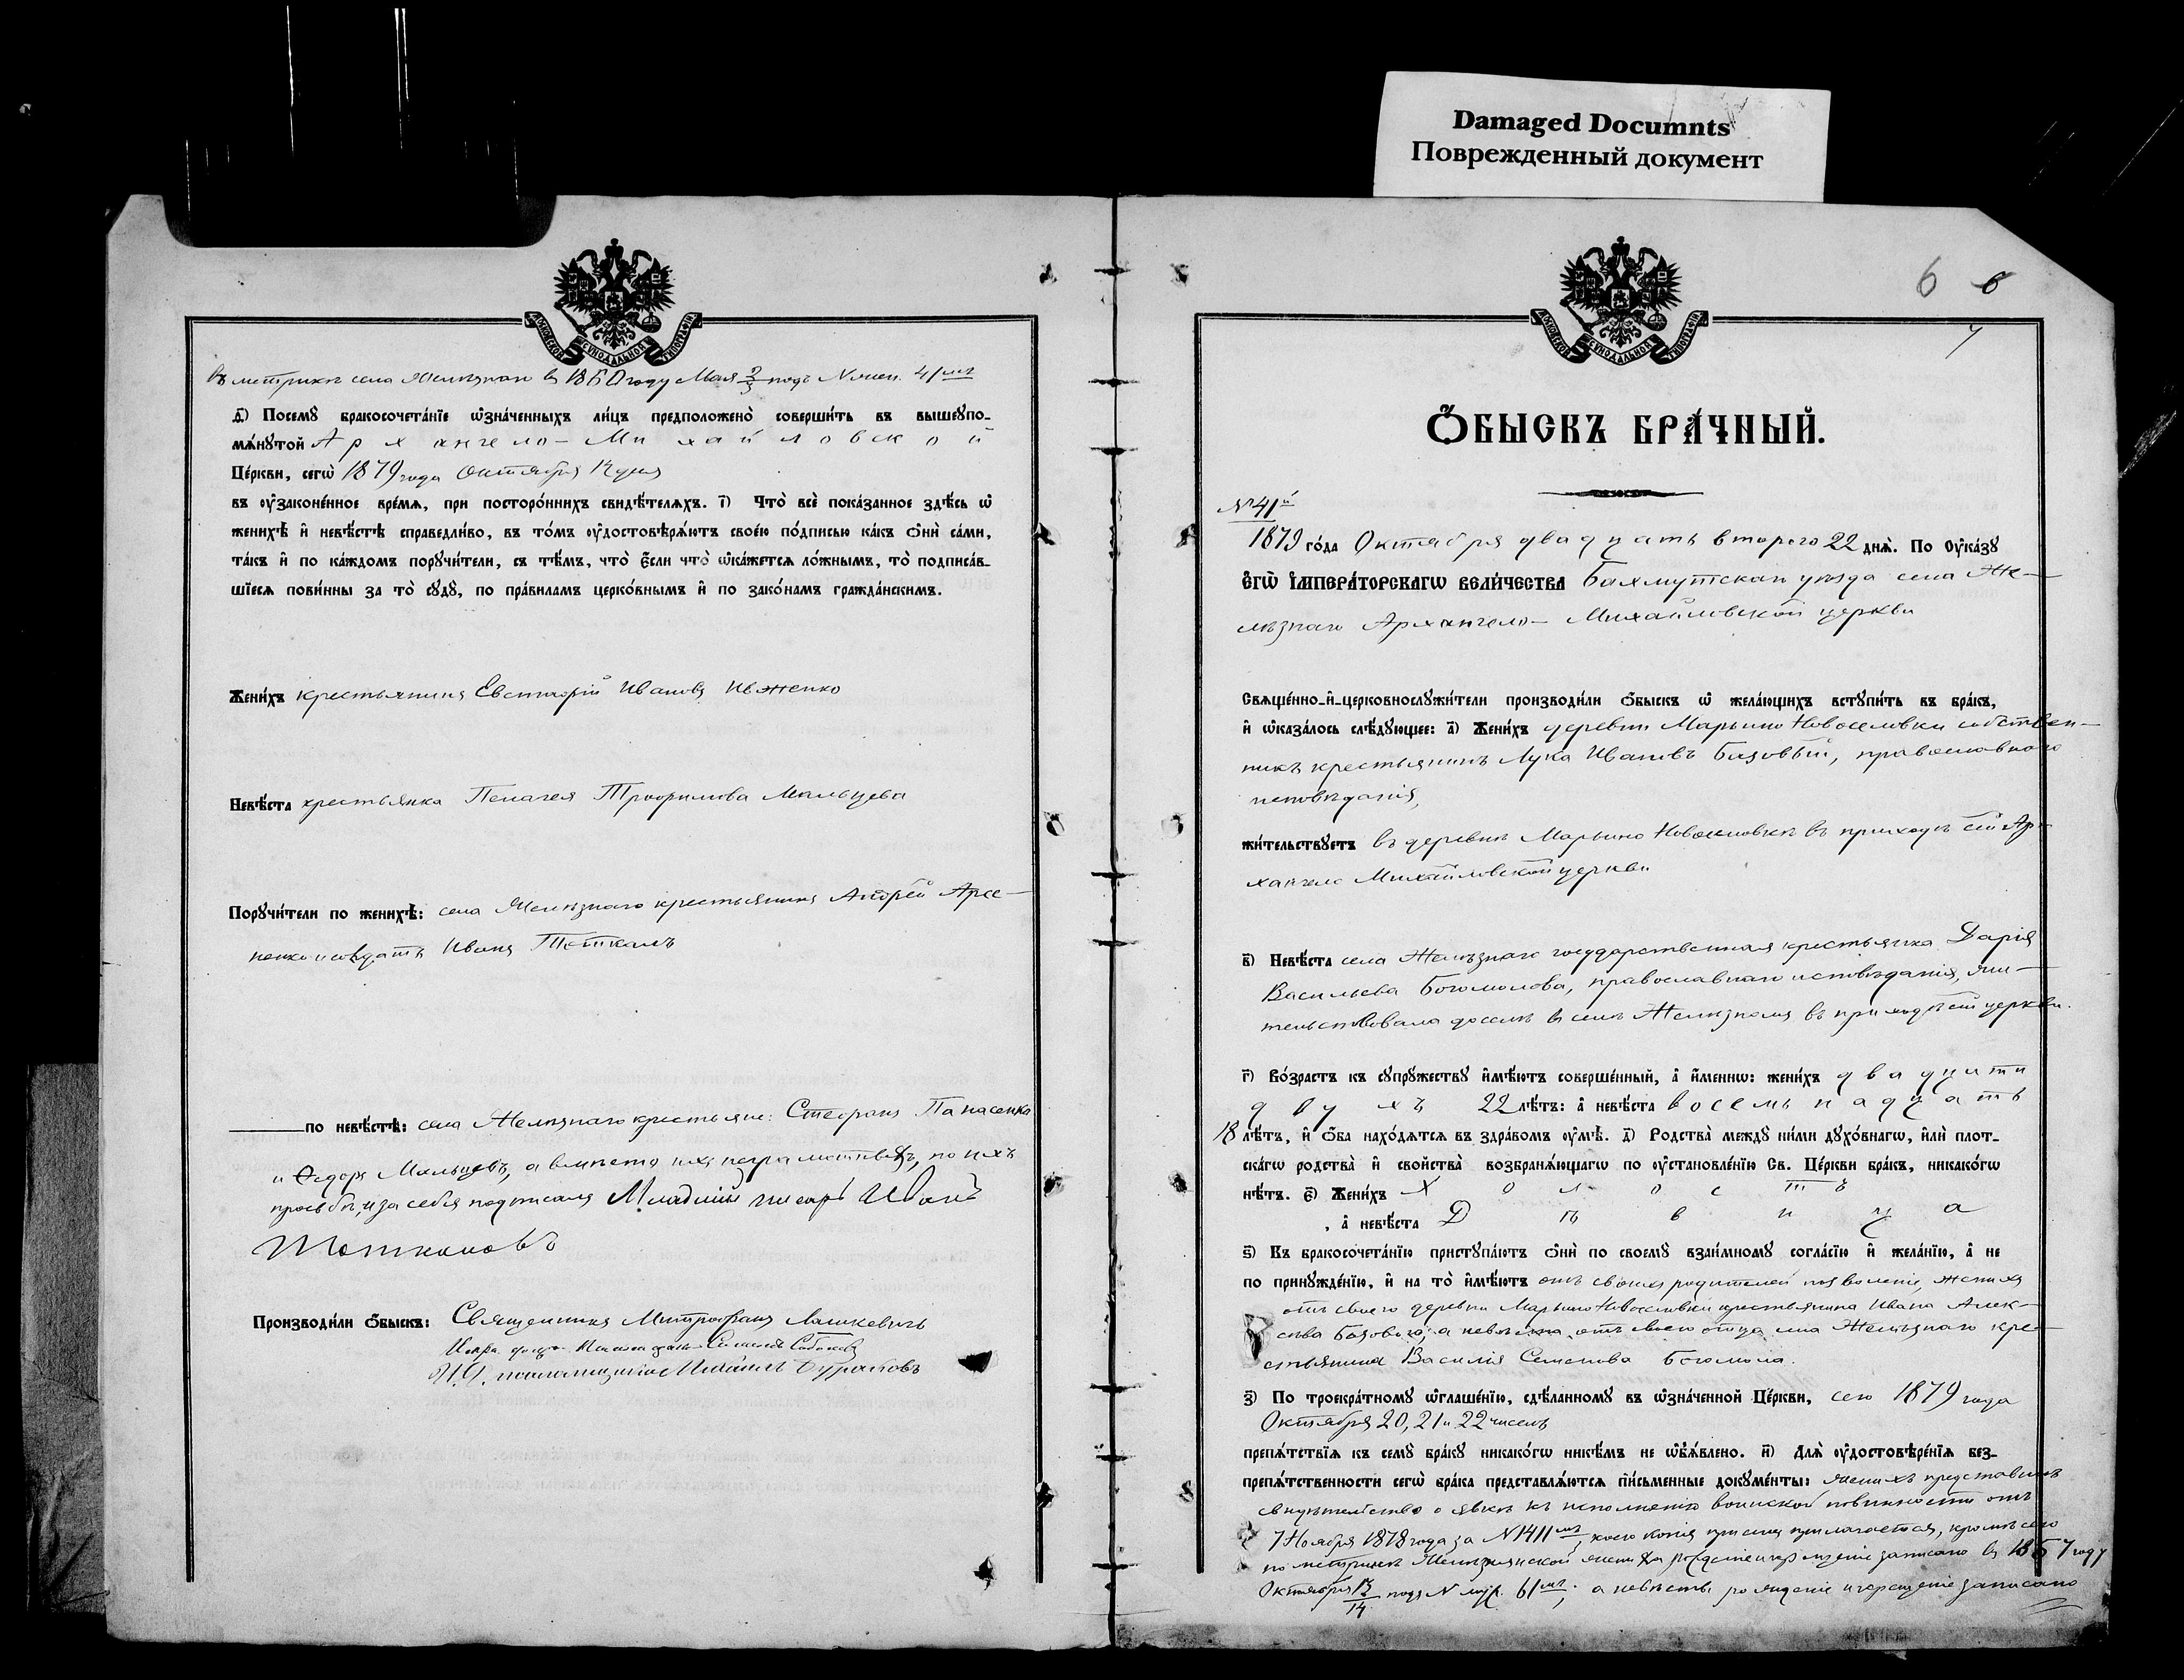 Damaged Documnts
Поврежденный документ
въ метрикѣ села Желѣзнаго въ 1860 году Мая 2/3 подъ № жен. 41мъ
д҃) Посемꙋ бракосочета́нїе ѡ҆зна́ченныхъ ли́цъ предположено̀ соверши́ть въ вышеꙋпо-
мѧ́нꙋтой Архангело-Михайловской
Це́ркви, сегѡ̀ 1879 года Октября дня
въ ᲂу҆законе́нное вре́мѧ, при посторо́ннихъ свидѣ́телѧхъ. і҃) Что̀ всѐ пока́занное здѣ́сь ѡ҆
женихѣ̀ и҆ невѣ́стѣ справедли́во, въ то́мъ ᲂу҆достовѣрѧ́ютъ свое́ю по́дписью ка́къ ѻ҆нѝ са́ми,
та́къ и҆ по ка́ждомъ порꙋчи́тели, съ тѣ́мъ, что̀ є҆́сли что̀ ѡ҆ка́жетсѧ ло́жнымъ, то̀ подписа́в-
шїесѧ пови́нны за то̀ сꙋдꙋ̀, по пра́виламъ церко́внымъ и҆ по зако́намъ гражда́нскимъ.
Жени́хъ крестьянинъ Евстафій Ивановъ Ивженко
Невѣ́ста крестьянка Пелагея Трофимова Мальцева
Порꙋчи́тели по женихѣ̀: села Желѣзнаго крестьянинъ Андрей Арсе-
ненко и солдатъ Иванъ
по невѣ́стѣ: села Желѣзнаго крестьяне: Стефанъ Панасенко
и Ѳедоръ Мальцевъ, а вмѣсто ихъ неграмотныхъ, по ихъ
прозьбѣ, и за себя подписался Младшій писарь Иванъ
Производи́ли ѻ҆́быскъ: Священникъ Митрофанъ Лашкевичъ
И.Д. псаломщика Михаилъ Бураковъ
6 6
7
Ѻ҆́БЫСКЪ БРА́ЧНЫЙ.
№ 41й
1879 го́да Октября двадцать втораго 22 днѧ̀. По ᲂу҆ка́зꙋ
Є҆ГѠ̀ И҆МПЕРА́ТОРСКАГѠ ВЕЛИ́ЧЕСТВА Бахмутскаго уѣзда села Же-
лѣзнаго Архангело-Михайловской церкви
Свѧще́нно-и҆-церковнослꙋжи́тели производи́ли ѻ҆́быскъ ѡ҆ жела́ющихъ встꙋпи́ть въ бра́къ,
и҆ ѡ҆каза́лось слѣ́дꙋющее: а҃) Жени́хъ деревни Марьино Новоселовки собствен-
никъ крестьянинъ Лука Ивановъ Базовый, православнаго
исповѣданія,
жи́тельствꙋетъ въ деревнѣ Марьино Новоселовкѣ въ приходѣ сей Ар-
хангело Михайловской церкви
в҃) Невѣ́ста села Желѣзнаго государственная крестьянка Дарія
Васильева Богомолова, православнаго исповѣданія, жи-
тельствовала доселѣ въ селѣ Желѣзномъ въ приходѣ сей церкви.
г҃) Во́зрастъ къ сꙋпрꙋ́жествꙋ и҆мѣ́ютъ соверше́нный, а҆ и҆́меннѡ: жени́хъ двадцати
двухъ 22 лѣ́тъ: а҆ невѣ́ста восемьнадцать
18 лѣ́тъ, и҆ ѻ҆́ба нахо́дѧтсѧ въ здра́вомъ ᲂу҆мѣ̀. д҃) Родства̀ междꙋ̀ ни́ми дꙋхо́внагѡ, и҆лѝ плот-
ска́гѡ родства̀ и҆ свойства̀ возбранѧ́ющагѡ по ᲂу҆становле́нїю Св. Це́ркви бра́къ, никако́гѡ
нѣ́тъ. є҃) Жени́хъ Холостъ
, а҆ невѣ́ста Дѣвица
ѕ҃) Въ бракосочета́нїю пристꙋпа́ютъ ѻ҆нѝ по своемꙋ̀ взаи́мномꙋ согла́сїю и҆ жела́нїю, а҆ не
по принꙋжде́нїю, и҆ на то̀ и҆мѣ́ютъ отъ своихъ родителей позволеніе, женихъ
отъ своего деревни Марьино Новоселовки крестьянина Ивана Алек-
сѣева Базоваго, а невѣста отъ своего отца села Желѣзнаго кре-
стьянина Василія Семенова Богомола.
з҃) По троекра́тномꙋ ѡ҆глаше́нїю, сдѣ́ланномꙋ въ ѡ҆зна́ченной Це́ркви, сего 1879 года
Октября 20, 21 и 22 чиселъ
препѧ́тствїѧ къ семꙋ̀ бра́кꙋ никако́гѡ никѣ́мъ не ѡ҆бъѧ́влено. и҃) Длѧ̀ ᲂу҆достовѣре́нїѧ без-
препѧ́тственности сегѡ̀ бра́ка представлѧ́ютсѧ пи́сьменные докꙋме́нты: женихъ представилъ
свидѣтельство о явкѣ къ исполненію воинской повинности отъ
7 Ноября 1878 года за № 1411мъ, коего копія при семъ прилагается, кромѣ сего
по метрикѣ Желѣзнянской жениха рожденіе и крещеніе записано въ 1857 году
Октября 13/14 подъ № муж. 61мъ; а невѣсты рожденіе и крещеніе записано